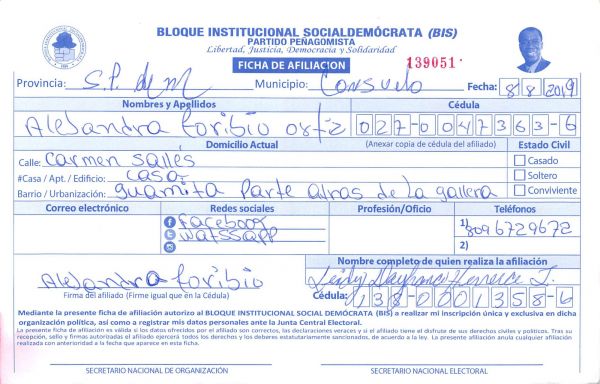 BLOQUE INSTITUCIONAL SOCIALDEMÓCRATA (BIS)
PARTIDO PEÑAGOMISTA
Libertad, Justicia, Democracia y Solidaridad
FICHA DE AFILIACION 139051
Provincia: S.P. de M Municipio: Consuelo Fecha: 8/8/2019
Nombres y Apellidos Cédula
Alejandra toribio ortiz 027-0047363-6
Domicilio Actual (Anexar copia de cédula del afiliado) Estado Civil
Calle: carmen sallés Casado
#Casa / Apt. / Edificio: casa Soltero
Barrio / Urbanización: guamita Parte atras de la gallera Conviviente
Correo electrónico Redes sociales Profesión/Oficio Teléfonos
facebook 1) 8096729672
watssapp 2)
Nombre completo de quien realiza la afiliación
Alejandra toribio Leidy
Firma del afiliado (Firme igual que en la Cédula) Cédula: 138-0001358-6
Mediante la presente ficha de afiliación autorizo al BLOQUE INSTITUCIONAL SOCIAL DEMÓCRATA (BIS) a realizar mi inscripción única y exclusiva en dicha
organización política, así como a registrar mis datos personales ante la Junta Central Electoral.
La presente ficha de afiliación es válida si los datos ofrecidos por el afiliado son correctos, las declaraciones veraces y si el titular tiene el disfrute de sus derechos civiles y políticos. Tras su
recepción, sello y firmas autorizadas el afiliado ejercerá todos los derechos y los deberes estatutariamente sancionados, de acuerdo a la ley. La presente afiliación anula cualquier afiliación
realizada con anterioridad a la fecha que aparece en esta ficha.
SECRETARIO NACIONAL DE ORGANIZACIÓN SECRETARIO NACIONAL ELECTORAL